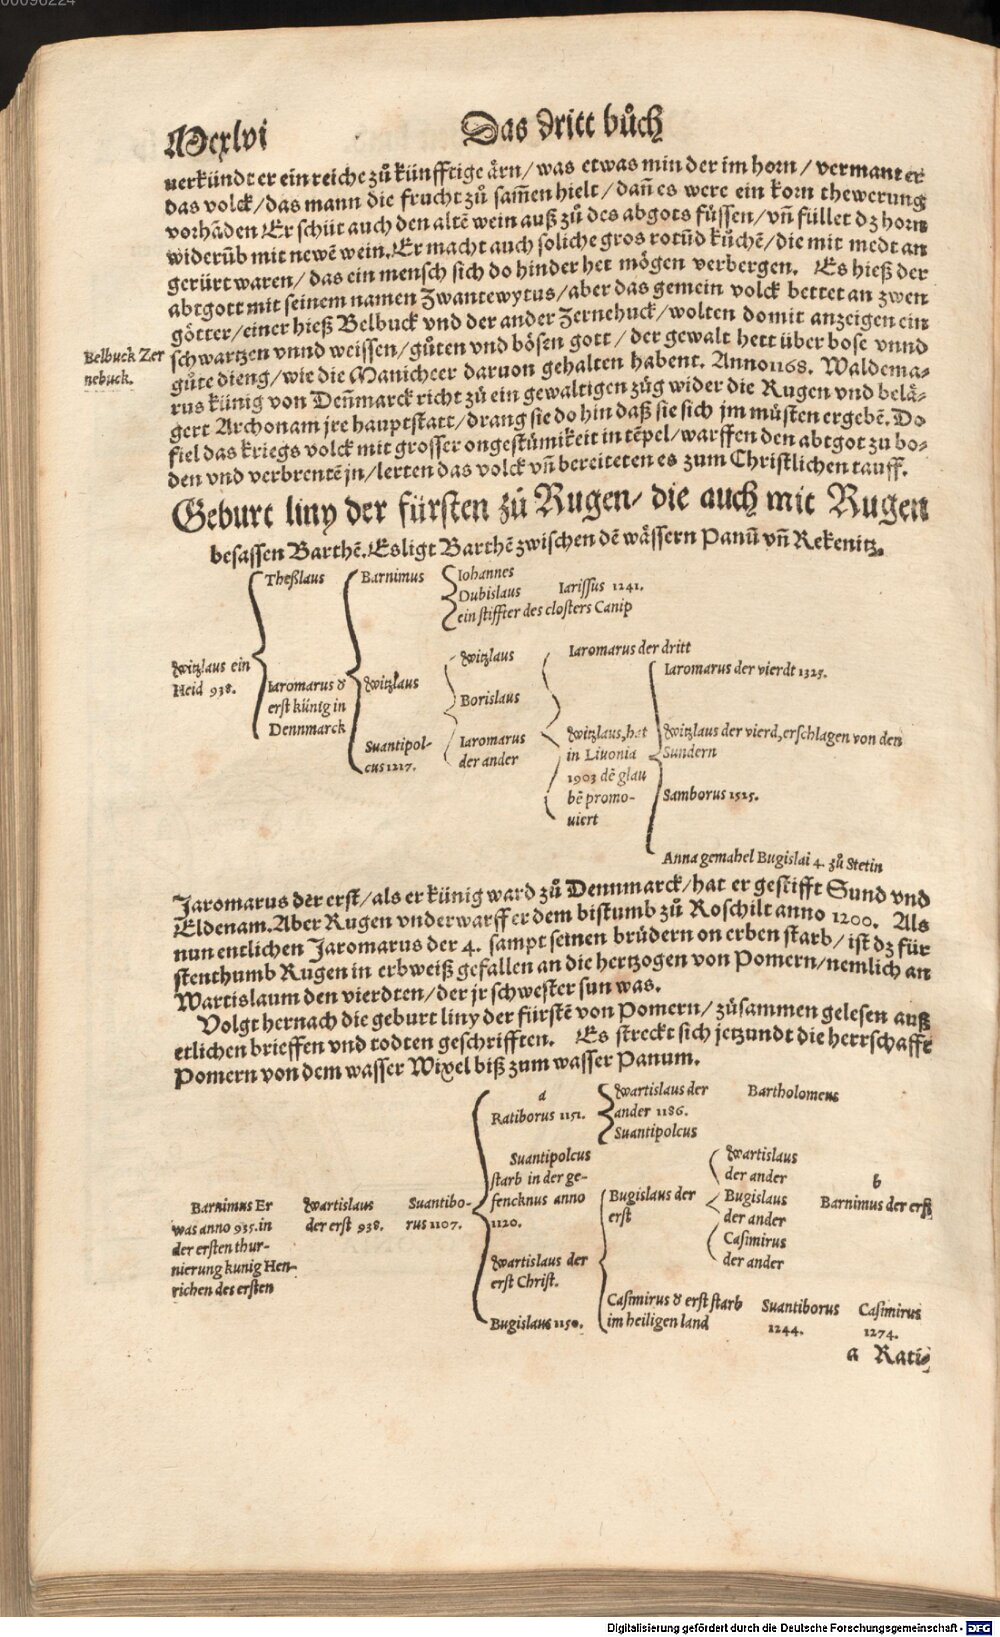 00096224
Mcxlvi
Das dritt bůch
verkündt er ein reiche zů künfftige ärn/was etwas minder im horn/vermant er
das volck/das mann die frucht zů sam̃en hielt/dañ es were ein korn thewerung
vorhãden Er schüt auch den altẽ wein auß zů des abgots füssen/vñ füllet dz horn
widerũb mit newẽ wein. Er macht auch soliche gros rotũd kůchẽ/die mit medt an
gerürt waren/das ein mensch sich do hinder het mögen verbergen. Es hieß der
abtgott mit seinem namen Zwantewytus/aber das gemein volck bettet an zwen
götter/einer hieß Belbuck vnd der ander Zernebuck/wolten domit anzeigen ein
Belbuck Zer
nebuck.
schwartzen vnnd weissen/gůten vnd bösen gott/der gewalt hett über bose vnnd
gůte dieng/wie die Manicheer daruon gehalten habent. Anno 1168. Waldema-
rus künig von Deñmarck richt zů ein gewaltigen zůg wider die Rugen vnd belä-
gert Archonam jre hauptstatt/drang sie do hin daß sie sich jm müsten ergebẽ. Do
fiel das kriegs volck mit grosser ongestümikeit in tẽpel/warffen den abtgot zu bo-
den vnd verbrentẽ jn/lerten das volck vñ bereiteten es zum Christlichen tauff.
Geburt liny der fürsten zů Rugen/die auch mit Rugen
besassen Barthẽ. Es ligt Barthẽ zwischen dẽ wässern Panũ vñ Rekenitz.
Theßlaus
Barnimus
Iohannes
Dubislaus
Iarissus 1241.
ein stiffter des closters Canip
Witzlaus ein
Heid 938.
Iaromarus d
erst künig in
Dennmarck
Witzlaus
Suantipol-
cus 1217.
Witzlaus
Borislaus
Iaromarus
der ander
Iaromarus der dritt
Witzlaus, hat
in Liuonia
1903 dẽ glau
bẽ promo-
uiert
Iaromarus der vierdt 1325.
Witzlaus der vierd, erschlagen von den
Sundern
Samborus 1525.
Anna gemahel Bugislai 4. zů Stetin
Jaromarus der erst/als er künig ward zů Dennmarck/hat er gestifft Sund vnd
Eldenam. Aber Rugen vnderwarff er dem bistumb zů Roschilt anno 1200. Als
nun entlichen Jaromarus der 4. sampt seinen brüdern on erben starb/ist dz für
stenthumb Rugen in erbweiß gefallen an die hertzogen von Pomern/nemlich an
Wartislaum den vierdten/der jr schwester sun was.
Volgt hernach die geburt liny der fürstẽ von Pomern/zůsammen gelesen auß
etlichen brieffen vnd todten geschrifften. Es streckt sich jetzundt die herrschafft
Pomern von dem wasser Wixel biß zum wasser Panum.
Barnimus Er
was anno 935. in
der ersten thur-
nierung kunig Hen-
richen des ersten
Wartislaus
der erst 938.
Suantibo-
rus 1107.
a
Ratiborus 1151.
Suantipolcus
starb in der ge-
fencknus anno
1120.
Wartislaus der
erst Christ.
Bugislaus 1150.
Wartislaus der
ander 1186.
Suantipolcus
Bartholomeus
Bugislaus der
erst
Casimirus d erst starb
im heiligen land
Wartislaus
der ander
Bugislaus
der ander
Casimirus
der ander
b
Barnimus der erst
Suantiborus
1244.
Casimirus
1274.
a Rati-
Digitalisierung gefördert durch die Deutsche Forschungsgemeinschaft - DFG